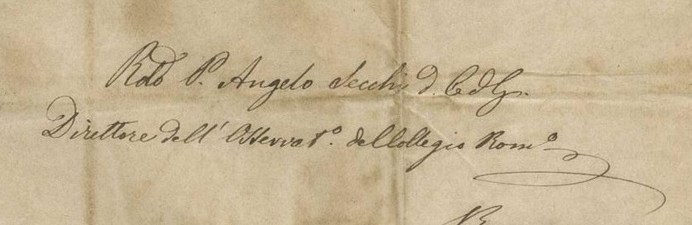 Rdo P. Angelo Secchi d. C. d. G.
Direttore dell' Osservat.o del Collegio Rom.o